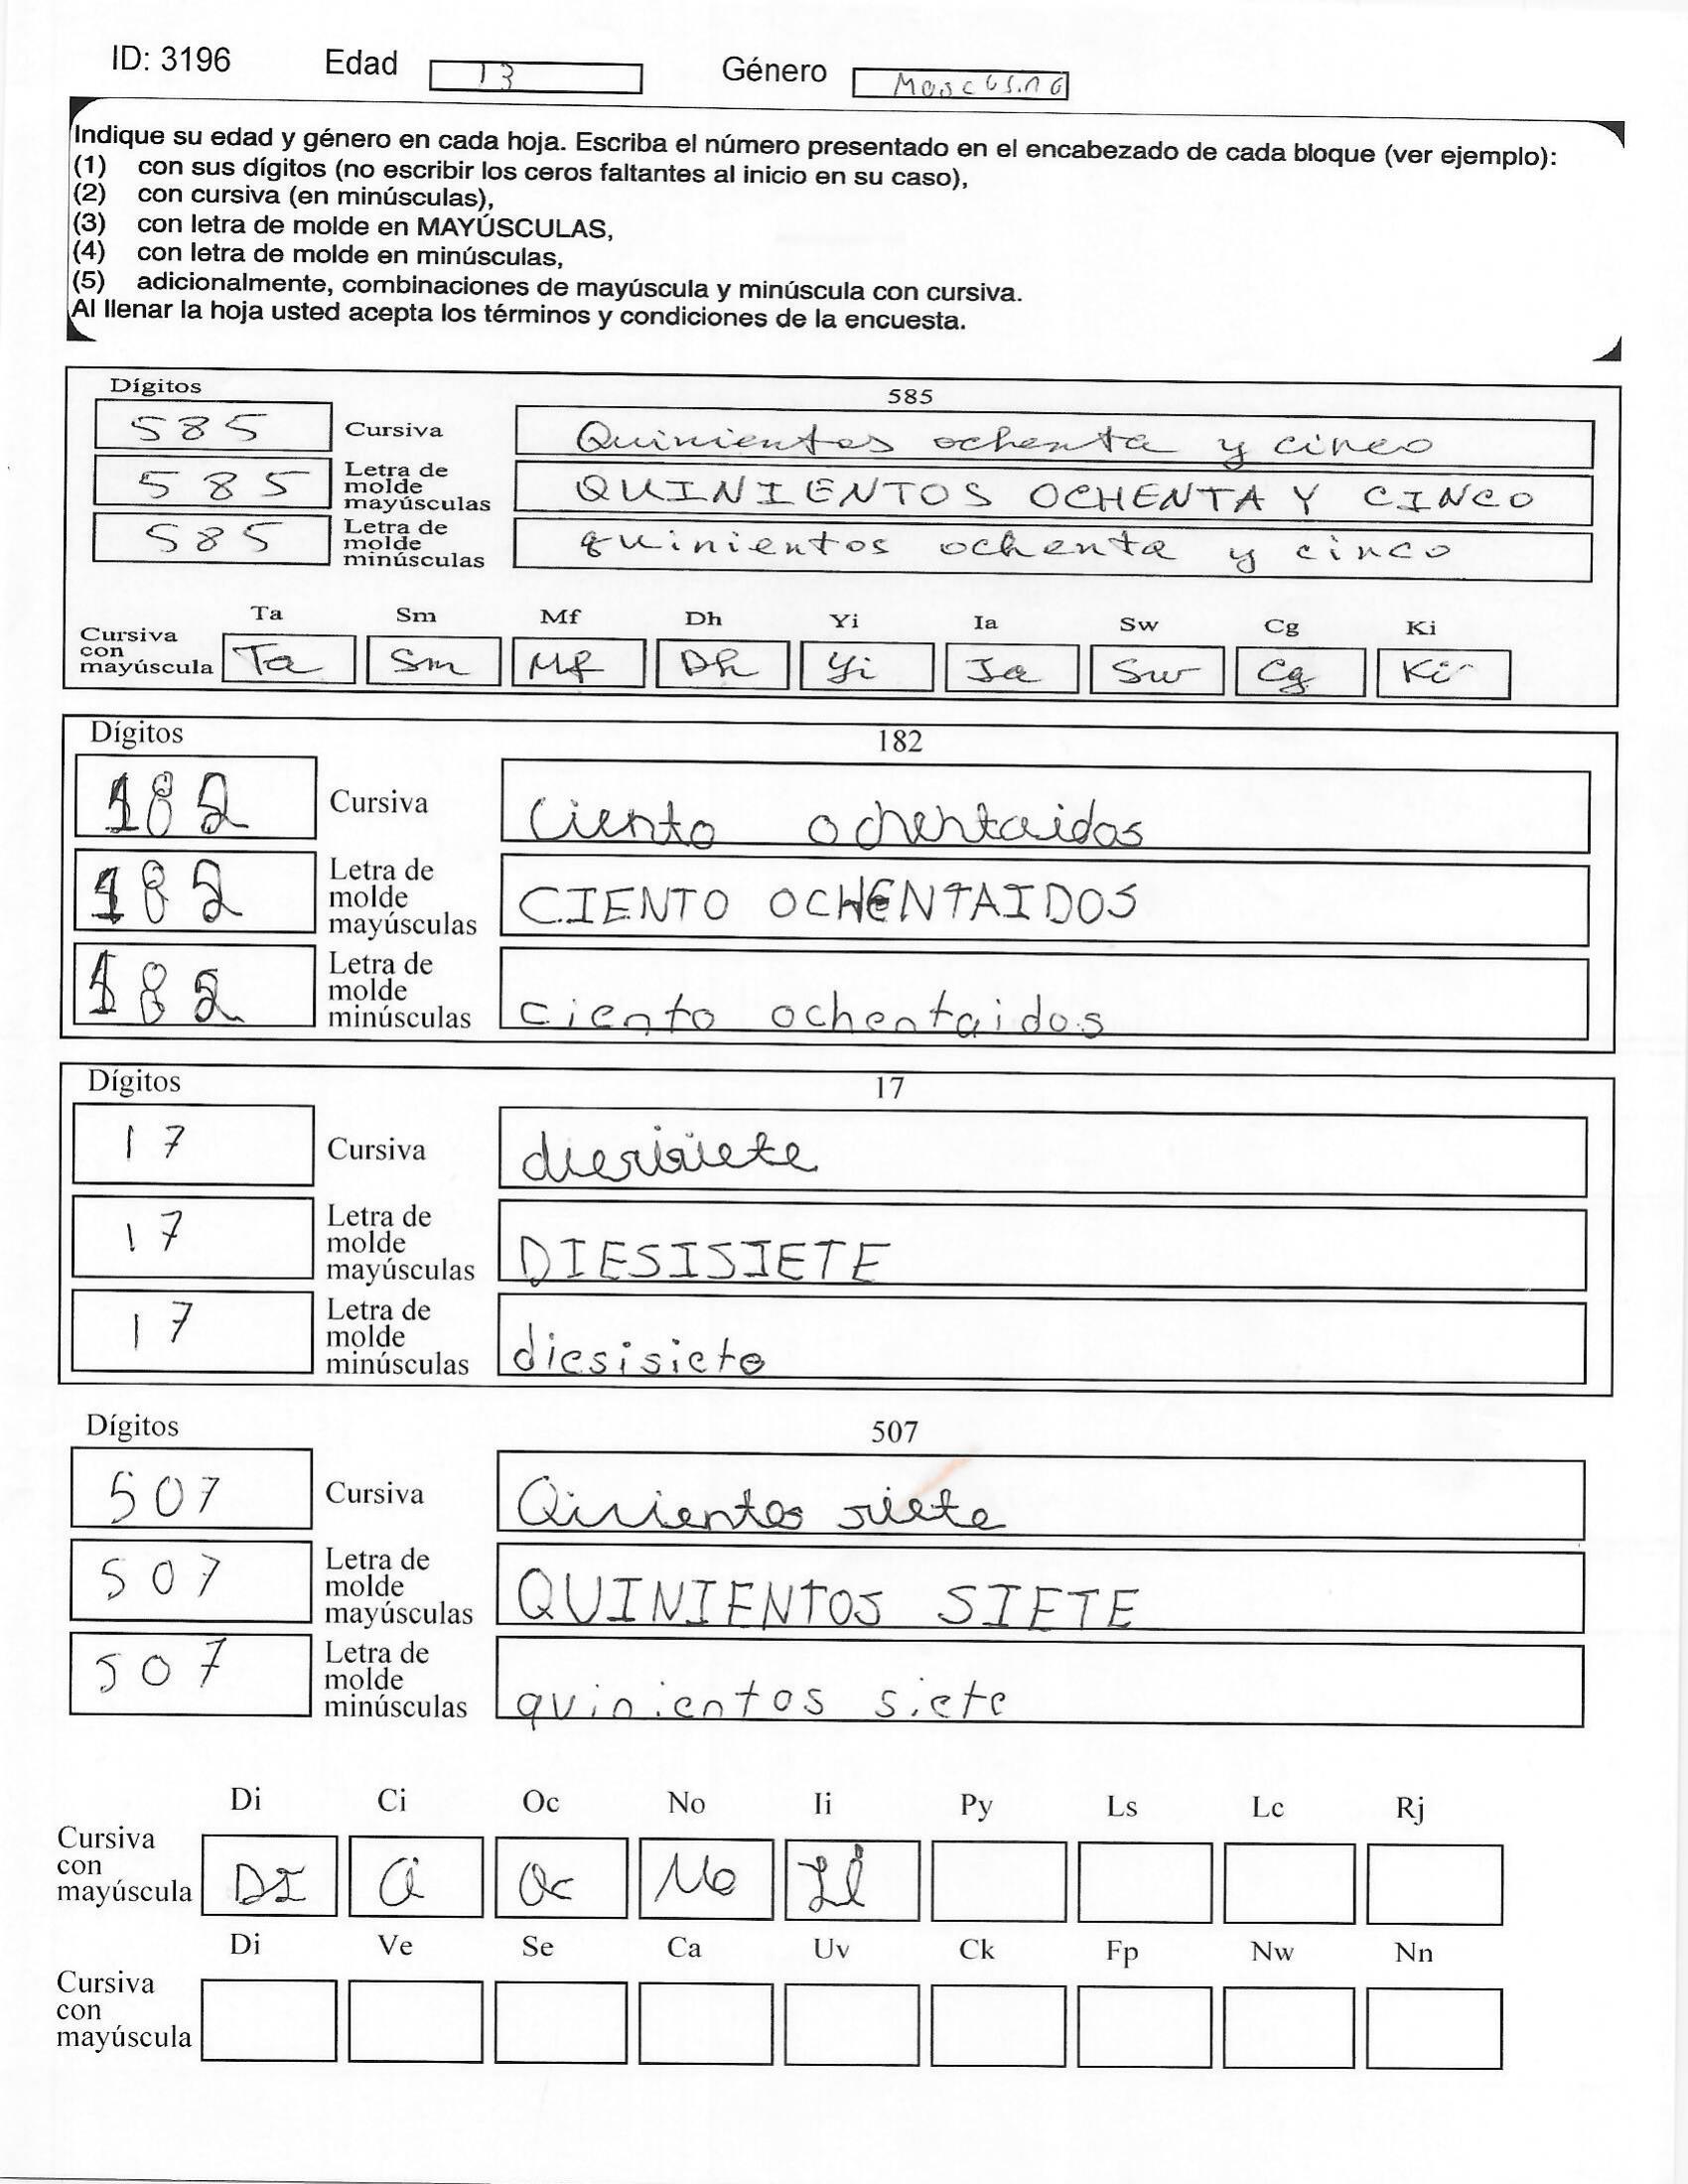 ID: 3196 Edad 13 Género Mascusino
Indique su edad y género en cada hoja. Escriba el número presentado en el encabezado de cada bloque (ver ejemplo):
(1) con sus dígitos (no escribir los ceros faltantes al inicio en su caso),
(2) con cursiva (en minúsculas),
(3) con letra de molde en MAYÚSCULAS,
(4) con letra de molde en minúsculas,
(5) adicionalmente, combinaciones de mayúscula y minúscula con cursiva.
Al llenar la hoja usted acepta los términos y condiciones de la encuesta.
Dígitos 585
585 Cursiva Quinientos ochenta y cinco
585 Letra de molde mayúsculas QUINIENTOS OCHENTA Y CINCO
585 Letra de molde minúsculas quinientos ochenta y cinco
Ta Sm Mf Dh Yi Ia Sw Cg Ki
Cursiva con mayúscula Ta Sm Mf Dh Yi Ia Sw Cg Ki
Dígitos 182
182 Cursiva Ciento ochentaidos
182 Letra de molde mayúsculas CIENTO OCHENTAIDOS
182 Letra de molde minúsculas ciento ochentaidos
Dígitos 17
17 Cursiva diesisiete
17 Letra de molde mayúsculas DIESISIETE
17 Letra de molde minúsculas diesisiete
Dígitos 507
507 Cursiva Qinientos siete
507 Letra de molde mayúsculas QUINIENTOS SIETE
507 Letra de molde minúsculas quinientos siete
Di Ci Oc No Ii Py Ls Lc Rj
Cursiva con mayúscula DI Ci Oc No Ii
Di Ve Se Ca Uv Ck Fp Nw Nn
Cursiva con mayúscula